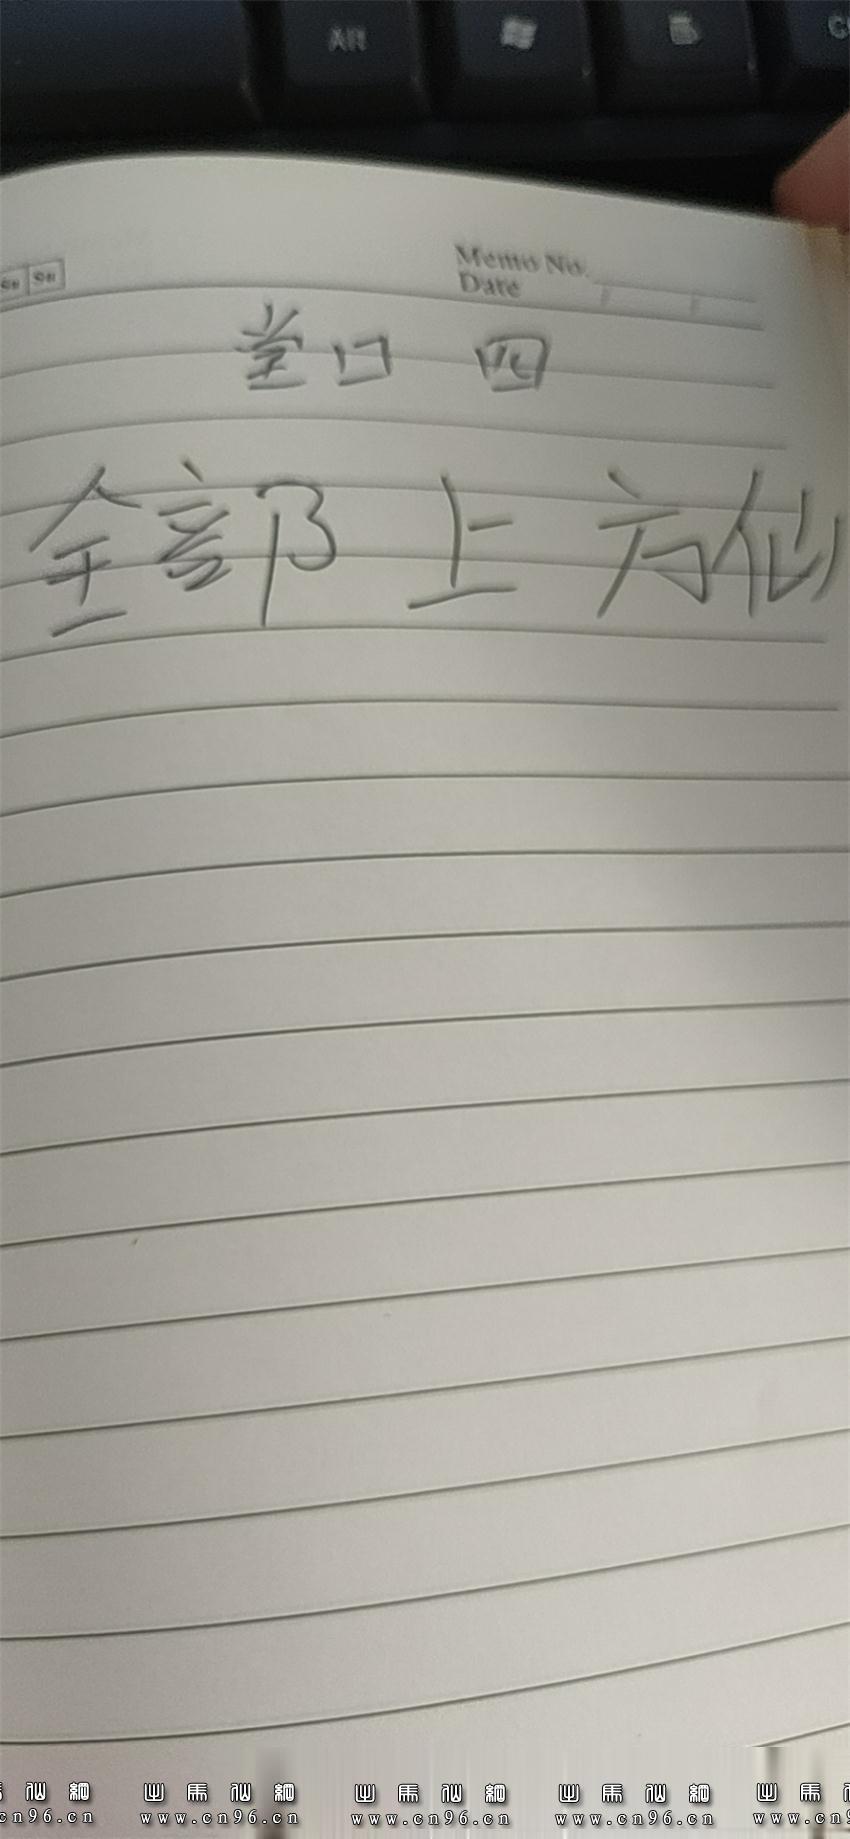 Alt
Memo No.
Date
堂口 四
全部 上 方仙
出馬仙網 出馬仙網 出馬仙網 出馬仙網
www.cn96.cn www.cn96.cn www.cn96.cn www.cn96.cn